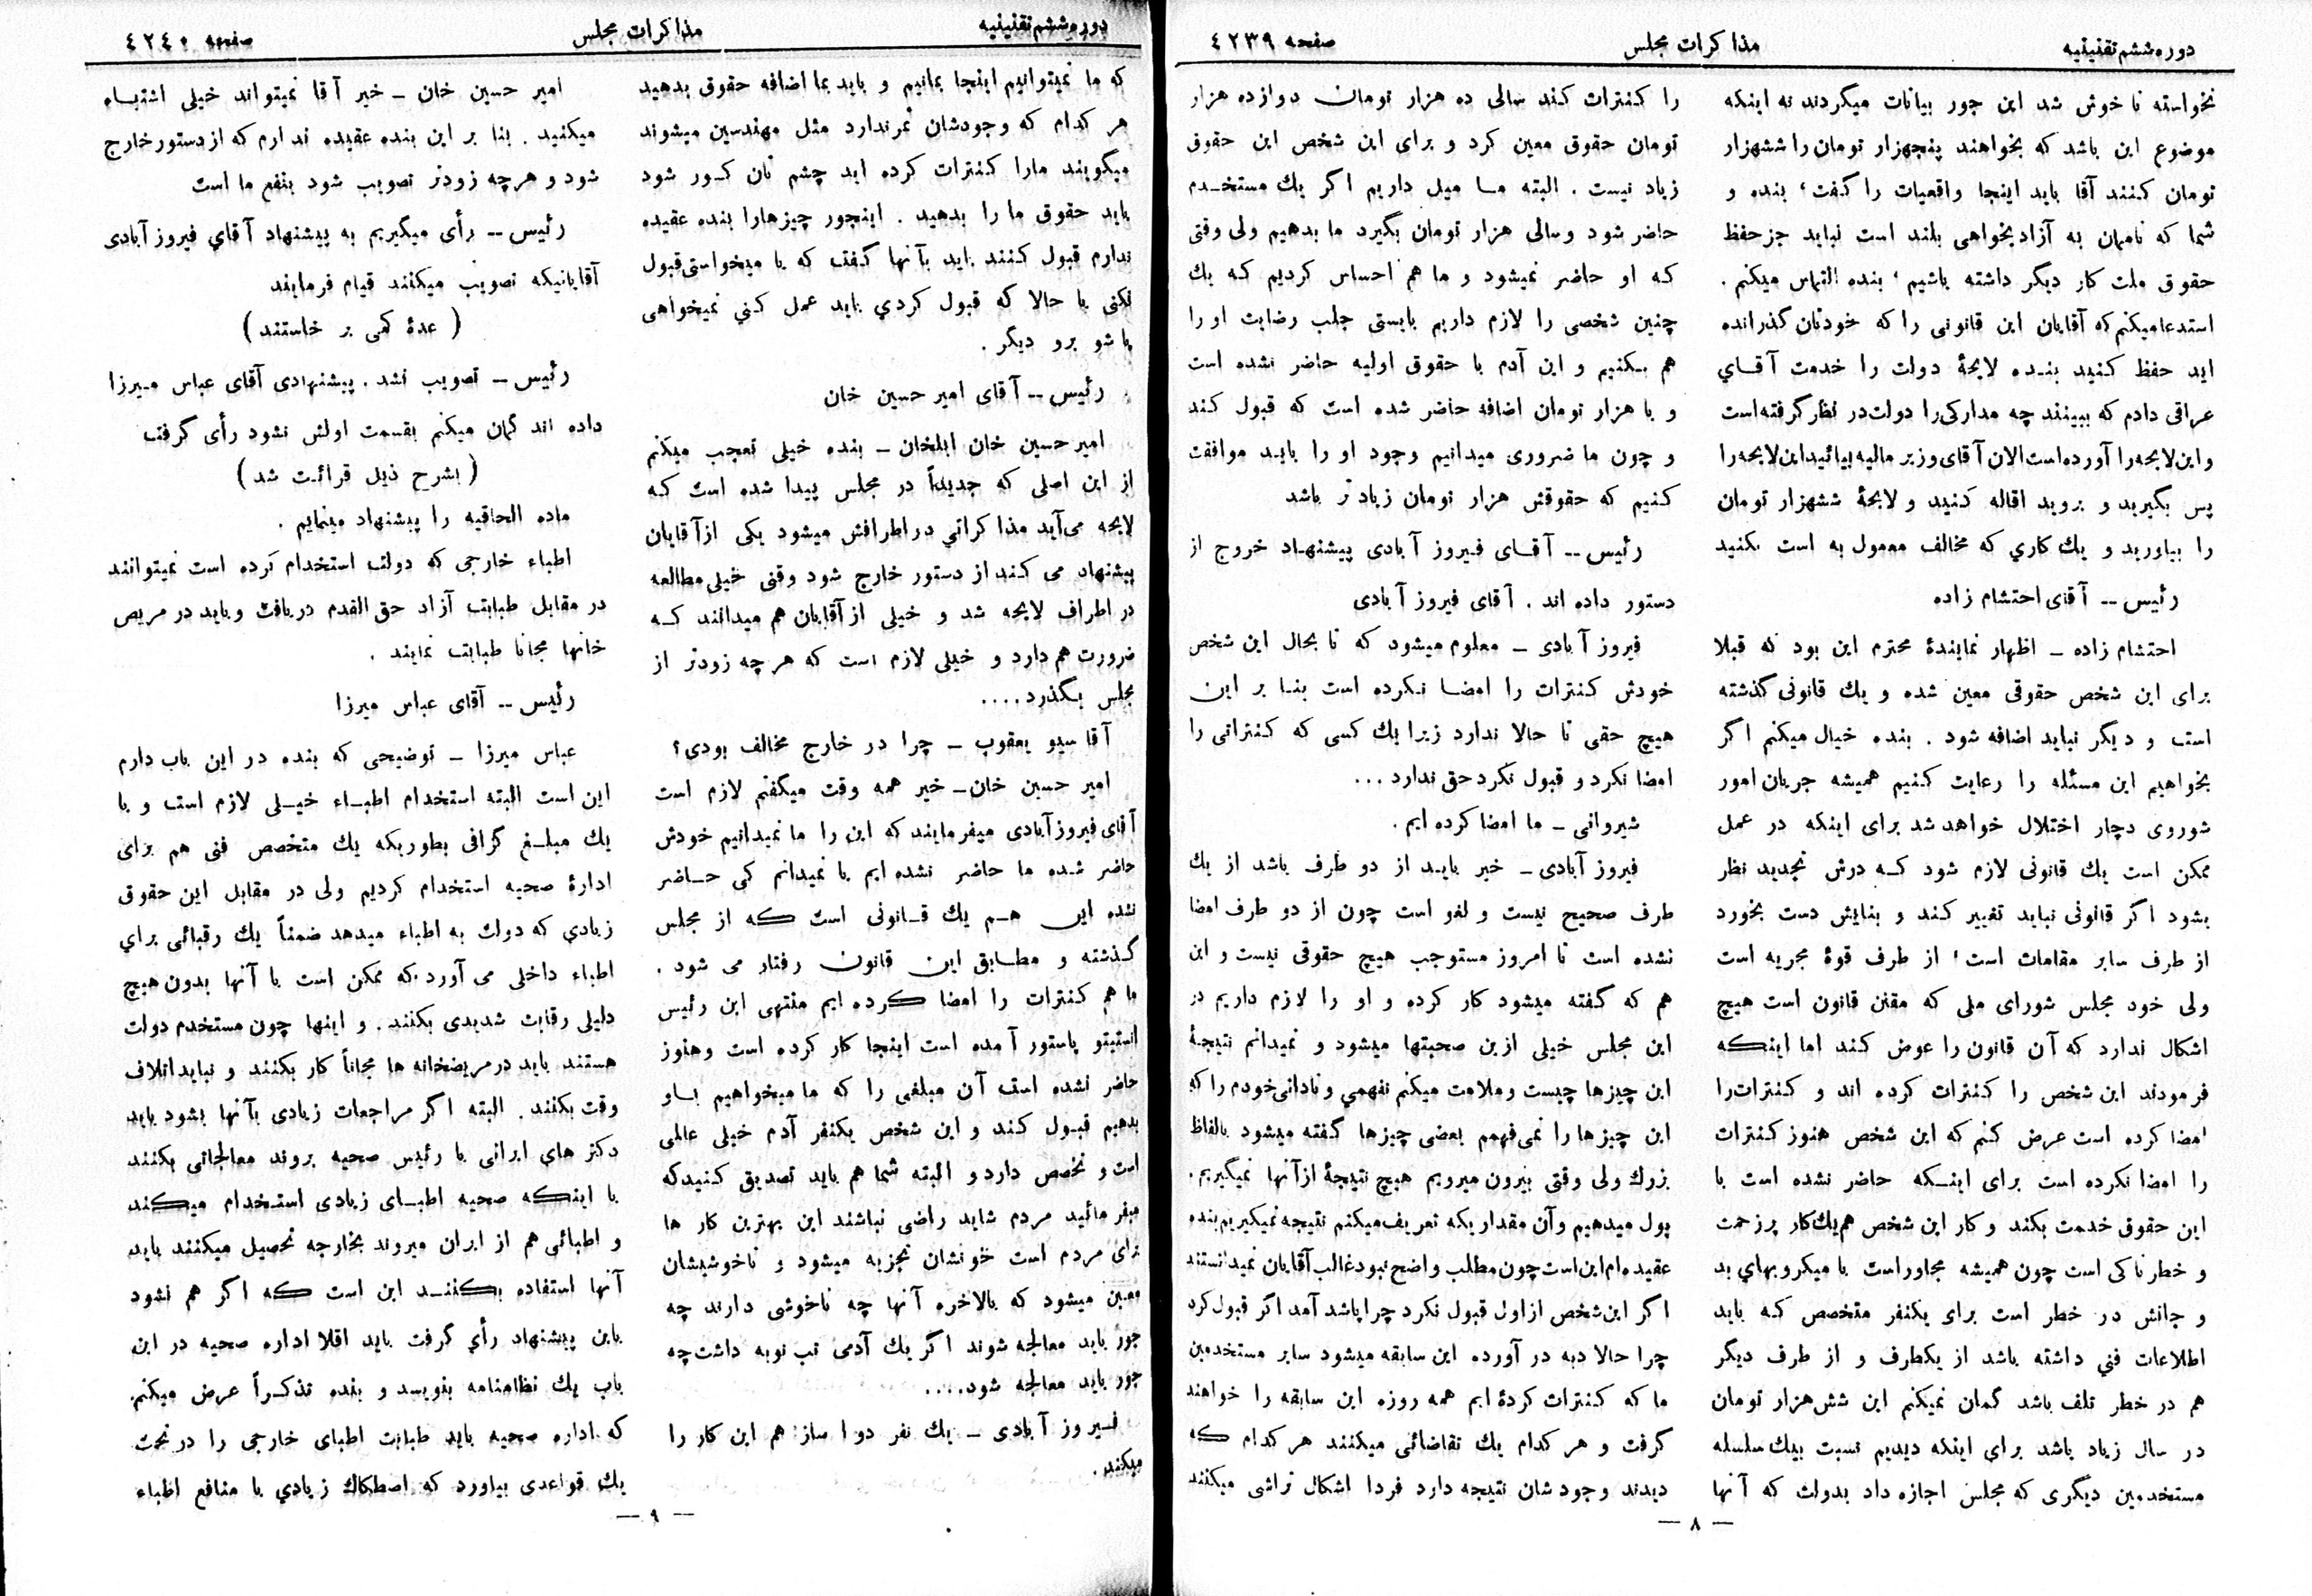 دوره ششم تقنینیه
مذاکرات مجلس
صفحه ٤٢٣٩
نخواسته ناخوش شد این جور بیانات میکردند نه اینکه
موضوع این باشد که بخواهند پنجهزار تومان را ششهزار
تومان کنند آقا باید اینجا واقعیات را گفت، بنده و
شما که ناممان به آزادیخواهی بلند است نباید جز حفظ
حقوق ملت کار دیگر داشته باشیم، بنده التماس میکنم.
استدعا میکنم که آقایان این قانونی را که خودتان گذرانده
اید حفظ کنید بنده لایحهٔ دولت را خدمت آقای
عراقی دادم که ببینند چه مدارکی را دولت در نظر گرفته است
و این لایحه را آورده است الان آقای وزیر مالیه بیائید این لایحه را
پس بگیرید و بروید اقاله کنید و لایحهٔ ششهزار تومان
را بیاورید و یك کاري که مخالف معمول به است نکنید
رئیس -- آقای احتشام زاده
احتشام زاده - اظهار نمایندهٔ محترم این بود که قبلا
برای این شخص حقوقی معین شده و یك قانونی گذشته
است و دیگر نباید اضافه شود. بنده خیال میکنم اگر
بخواهیم این مسئله را رعایت کنیم همیشه جریان امور
شوروی دچار اختلال خواهد شد برای اینکه در عمل
ممکن است یك قانونی لازم شود که درش تجدید نظر
بشود اگر قانونی نباید تغییر کند و بنایش دست بخورد
از طرف سایر مقامات است، از طرف قوهٔ مجریه است
ولی خود مجلس شورای ملی که مقنن قانون است هیچ
اشکال ندارد که آن قانون را عوض کند اما اینکه
فرمودند این شخص را کنترات کرده اند و کنترات را
امضا کرده است عرض کنم که این شخص هنوز کنترات
را امضا نکرده است برای اینکه حاضر نشده است با
این حقوق خدمت بکند و کار این شخص هم یك کار پرزحمت
و خطرناکی است چون همیشه مجاور است با میکروبهای بد
و جانش در خطر است برای یکنفر متخصص که باید
اطلاعات فني داشته باشد از یکطرف و از طرف دیگر
هم در خطر تلف باشد گمان نمیکنم این شش هزار تومان
در سال زیاد باشد برای اینکه دیدیم نسبت بیك سلسله
مستخدمین دیگری که مجلس اجازه داد بدولت که آنها
را کنترات کند سالی ده هزار تومان دوازده هزار
تومان حقوق معین کرد و برای این شخص این حقوق
زیاد نیست. البته ما میل داریم اگر یك مستخدم
حاضر شود و سالی هزار تومان بگیرد ما بدهیم ولی وقتی
که او حاضر نمیشود و ما هم احساس کردیم که یك
چنین شخصی را لازم داریم بایستی جلب رضایت او را
هم بکنیم و این آدم با حقوق اولیه حاضر نشده است
و با هزار تومان اضافه حاضر شده است که قبول کند
و چون ما ضروری میدانیم وجود او را باید موافقت
کنیم که حقوقش هزار تومان زیادتر باشد
رئیس -- آقای فیروز آبادی پیشنهاد خروج از
دستور داده اند. آقای فیروز آبادی
فیروز آبادی - معلوم میشود که تا بحال این شخص
خودش کنترات را امضا نکرده است بنا بر این
هیچ حقی تا حالا ندارد زیرا یك کسی که کنتراتی را
امضا نکرد و قبول نکرد حق ندارد...
شیروانی - ما امضا کرده ایم.
فیروز آبادی - خیر باید از دو طرف باشد از یك
طرف صحیح نیست و لغو است چون از دو طرف امضا
نشده است تا امروز مستوجب هیچ حقوقی نیست و این
هم که گفته میشود کار کرده و او را لازم داریم در
این مجلس خیلی ازین صحبتها میشود و نمیدانم نتیجهٔ
این چیزها چیست و ملامت میکنم نفهمي و نادانی خودم را که
این چیزها را نمی فهمم بعضی چیزها گفته میشود بالفاظ
بزرك ولی وقتی بیرون میرویم هیچ نتیجهٔ از آنها نمیگیریم.
پول میدهیم و آن مقداریکه تعریف میکنم نتیجه نمیگیریم بنده
عقیده ام این است چون مطلب واضح نبود غالب آقایان نمیدانستند
اگر این شخص از اول قبول نکرد چرا پاشد آمد اگر قبول کرد
چرا حالا دبه در آورده این سابقه میشود سایر مستخدمین
ما که کنترات کردهٔ ایم همه روزه این سابقه را خواهند
گرفت و هر کدام یك تقاضائی میکنند هر کدام که
دیدند وجودشان نتیجه دارد فردا اشکال تراشی میکنند
— ٨ —
دوره ششم تقنینیه
مذاکرات مجلس
صفحه ٤٢٤٠
که ما نمیتوانیم اینجا بمانیم و باید بما اضافه حقوق بدهید
هر کدام که وجودشان ثمر ندارد مثل مهندسین میشوند
میگویند مارا کنترات کرده اید چشم تان کور شود
باید حقوق ما را بدهید. اینجور چیزهارا بنده عقیده
ندارم قبول کنند باید بآنها گفت که یا میخواستی قبول
نکنی یا حالا که قبول کردي باید عمل کني نمیخواهی
پاشو برو دیگر.
رئیس -- آقای امیر حسین خان
امیر حسین خان ایلخان - بنده خیلی تعجب میکنم
از این اصلی که جدیداً در مجلس پیدا شده است که
لایحه می آید مذاکراتي در اطرافش میشود یکی از آقایان
پیشنهاد می کند از دستور خارج شود وقتی خیلی مطالعه
در اطراف لایحه شد و خیلی از آقایان هم میدانند که
ضرورت هم دارد و خیلی لازم است که هر چه زودتر از
مجلس بگذرد....
آقا سید یعقوب - چرا در خارج مخالف بودی؟
امیر حسین خان - خیر همه وقت میگفتم لازم است
آقای فیروز آبادی میفرمایند که این را ما نمیدانیم خودش
حاضر شده ما حاضر نشده ایم یا نمیدانم کی حاضر
نشده این هم یك قانونی است که از مجلس
گذشته و مطابق این قانون رفتار می شود.
ما هم کنترات را امضا کرده ایم منتهی این رئیس
انستیتو پاستور آمده است اینجا کار کرده است و هنوز
حاضر نشده است آن مبلغی را که ما میخواهیم باو
بدهیم قبول کند و این شخص یکنفر آدم خیلی عالمی
است و تخصص دارد و البته شما هم باید تصدیق کنید که
میفرمائید مردم شاید راضی نباشند این بهترین کار ها
برای مردم است خونشان تجزیه میشود و ناخوشیشان
معین میشود که بالاخره آنها چه ناخوشی دارند چه
جور باید معالجه شوند اگر یك آدمی تب نوبه داشت چه
جور باید معالجه شود....
فیروز آبادی - یك نفر دوا ساز هم این کار را
میکند.
امیر حسین خان - خیر آقا نمیتواند خیلی اشتباه
میکنید. بنا بر این بنده عقیده ندارم که از دستور خارج
شود و هرچه زودتر تصویب شود بنفع ما است
رئیس -- رأی میگیریم به پیشنهاد آقاي فیروز آبادی
آقایانیکه تصویب میکنند قیام فرمایند
(عدهٔ کمی بر خاستند)
رئیس - تصویب نشد. پیشنهادی آقای عباس میرزا
داده اند گمان میکنم بقسمت اولش نشود رأی گرفت
(بشرح ذیل قرائت شد)
ماده الحاقیه را پیشنهاد مینمایم.
اطباء خارجی که دولت استخدام کرده است نمیتوانند
در مقابل طبابت آزاد حق القدم دریافت و باید در مریض
خانها مجانا طبابت نمایند.
رئیس -- آقای عباس میرزا
عباس میرزا - توضیحی که بنده در این باب دارم
این است البته استخدام اطباء خیلی لازم است و با
یك مبلغ گزافی بطوریکه یك متخصص فنی هم برای
ادارهٔ صحیه استخدام کردیم ولی در مقابل این حقوق
زیادي که دولت به اطباء میدهد ضمناً یك رقبائی براي
اطباء داخلی می آورد که ممکن است با آنها بدون هیچ
دلیلی رقابت شدیدی بکنند. و اینها چون مستخدم دولت
هستند باید در مریضخانه ها مجاناً کار بکنند و نباید اتلاف
وقت بکنند. البته اگر مراجعات زیادی بآنها بشود باید
دکتر های ایرانی با رئیس صحیه بروند معالجاتی بکنند
با اینکه صحیه اطبای زیادی استخدام میکند
و اطبائی هم از ایران میروند بخارجه تحصیل میکنند باید
آنها استفاده بکنند این است که اگر هم نشود
باین پیشنهاد رأي گرفت باید اقلا اداره صحیه در این
باب یك نظامنامه بنویسد و بنده تذکراً عرض میکنم.
که اداره صحیه باید طبابت اطبای خارجی را در تحت
یك قواعدی بیاورد که اصطکاك زیادي با منافع اطباء
— ٩ —